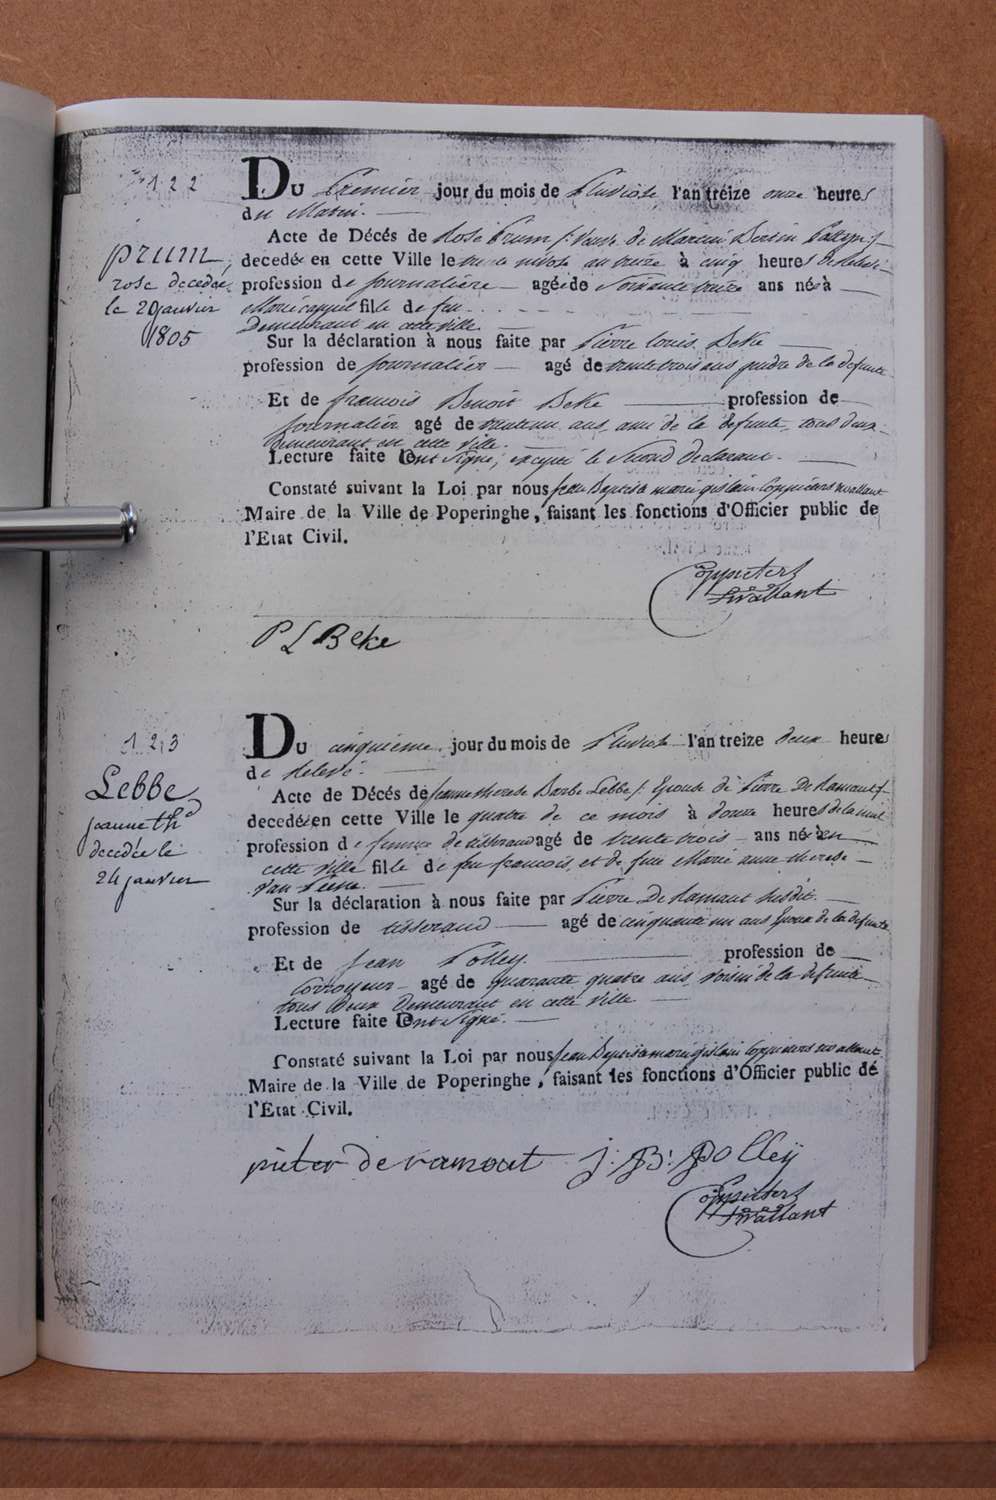 122
Du Premier jour du mois de Pluviose l'an treize onze heures
du Matin.
prum,
rose decedée
le 20 janvier
1805
Acte de Décés de Rose Prum f. Veuve de Martin Bertin
decedée en cette Ville le trente nivose an treize à cinq heures de relevé
profession de Journalière agée de Soixante treize ans né à
fille de feu
Demeurant en cette ville.
Sur la déclaration à nous faite par Pierre Louis Beke
profession de Journalier agé de trente trois ans gendre de la defunte
Et de francois Benoit Beke profession de
Journalier agé de ans, ami de la defunte, tous deux
Demeurant en cette ville.
Lecture faite ont signé, excepté le Second declarant.
Constaté suivant la Loi par nous Jean Baptiste marie gislain Coppieters wallant
Maire de la Ville de Poperinghe, faisant les fonctions d'Officier public de
l'Etat Civil.
Coppieters
wallant
P L Beke
123
Du cinquieme jour du mois de Pluviose l'an treize deux heures
de Relevé.
Lebbe
jeanne th.
decedée le
24 janvier
Acte de Décés de Jeanne therese Barbe Lebbe f. Epouse de Pierre De Ramout f.
decedée en cette Ville le quatre de ce mois à douze heures de la nuit
profession de femme de tisserand agé de trente trois ans né en
cette ville fille de feu francois, et de feue Marie anne therese
Van
Sur la déclaration à nous faite par Pierre De Ramout Susdit.
profession de tisserand agé de cinquante un ans Epoux de la defunte
Et de Jean Polley profession de
Corroyeur agé de quarante quatre ans voisin de la defunte
tous deux Demeurant en cette ville
Lecture faite ont Signé.
Constaté suivant la Loi par nous Jean Baptiste marie gislain Coppieters wallant
Maire de la Ville de Poperinghe, faisant les fonctions d'Officier public dé
l'Etat Civil.
pieter de ramout J: B: Polleÿ
Coppieters
wallant